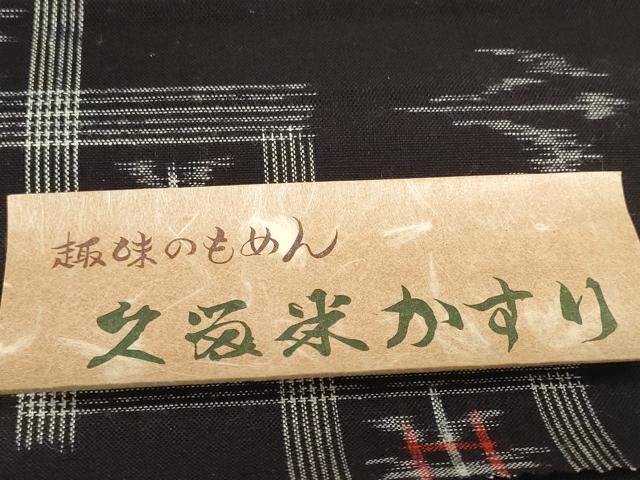 趣味のもめん
久留米かすり